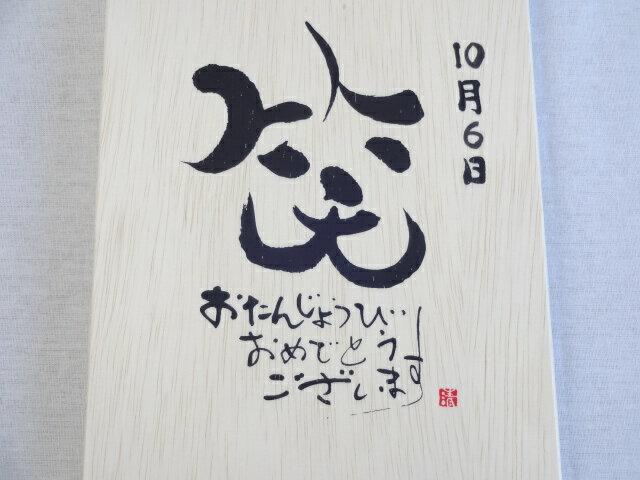 10月6日
笑
おたんじょうび
おめでとう
ございます